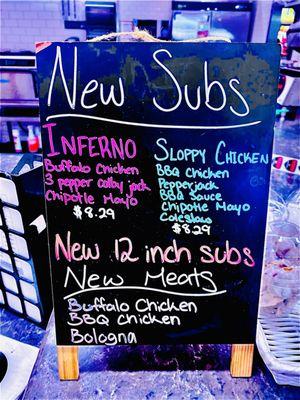 New Subs
INFERNO
Buffalo Chicken
3 pepper colby jack
Chipotle Mayo
$8.29
SLOPPY CHICKEN
BBQ Chicken
Pepperjack
BBQ Sauce
Chipotle Mayo
Coleslaw
$8.29
New 12 inch subs
New Meats
Buffalo Chicken
BBQ Chicken
Bologna